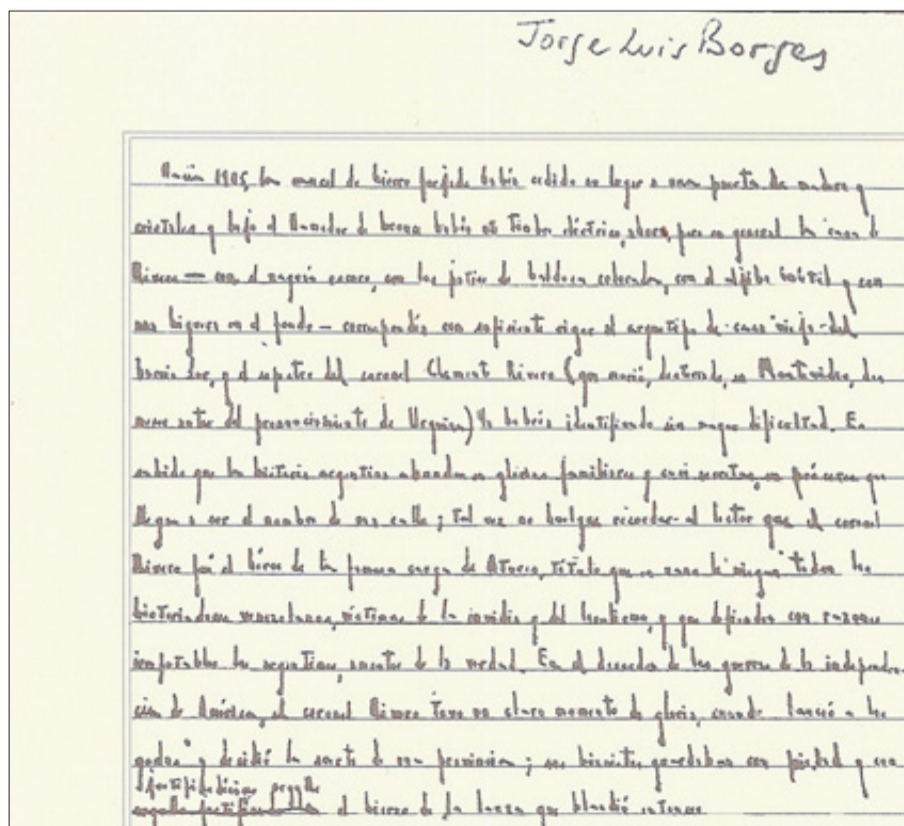 Jorge Luis Borges
Hacia 1905, la cancel de hierro forjado había cedido su lugar a una puerta de madera y
cristales y bajo el llamador de bronce había un timbre eléctrico, ahora, pero en general la casa de
Rivero — con el zaguán oscuro, con los patios de baldosa colorada, con el aljibe inútil y con
una higuera en el fondo — correspondía con suficiente rigor al arquetipo de casa vieja del
barrio sur, y el espectro del coronel Clemente Rivero (que murió, desterrado, en Montevideo, dos
meses antes del pronunciamiento de Urquiza) la hubiera identificado sin mayor dificultad. Es
sabido que la historia argentina abunda en glorias familiares y casi secretas, en próceres que
llegan a ser el nombre de una calle; tal vez no huelgue recordar al lector que el coronel
Rivero fué el héroe de la primera carga de, título que en vano le niegan todos los
historiadores venezolanos, víctimas de la envidia y del, y que defienden con razones
irrefutables los argentinos, amantes de la verdad. En el decurso de las guerras de la independen-
cia de América, el coronel Rivero tuvo un claro momento de gloria, cuando lanceó a los
godos y decidió la suerte de una provincia; sus bisnietos guardaban con piedad y con
orgullo
el hierro de la lanza que blandió entonces